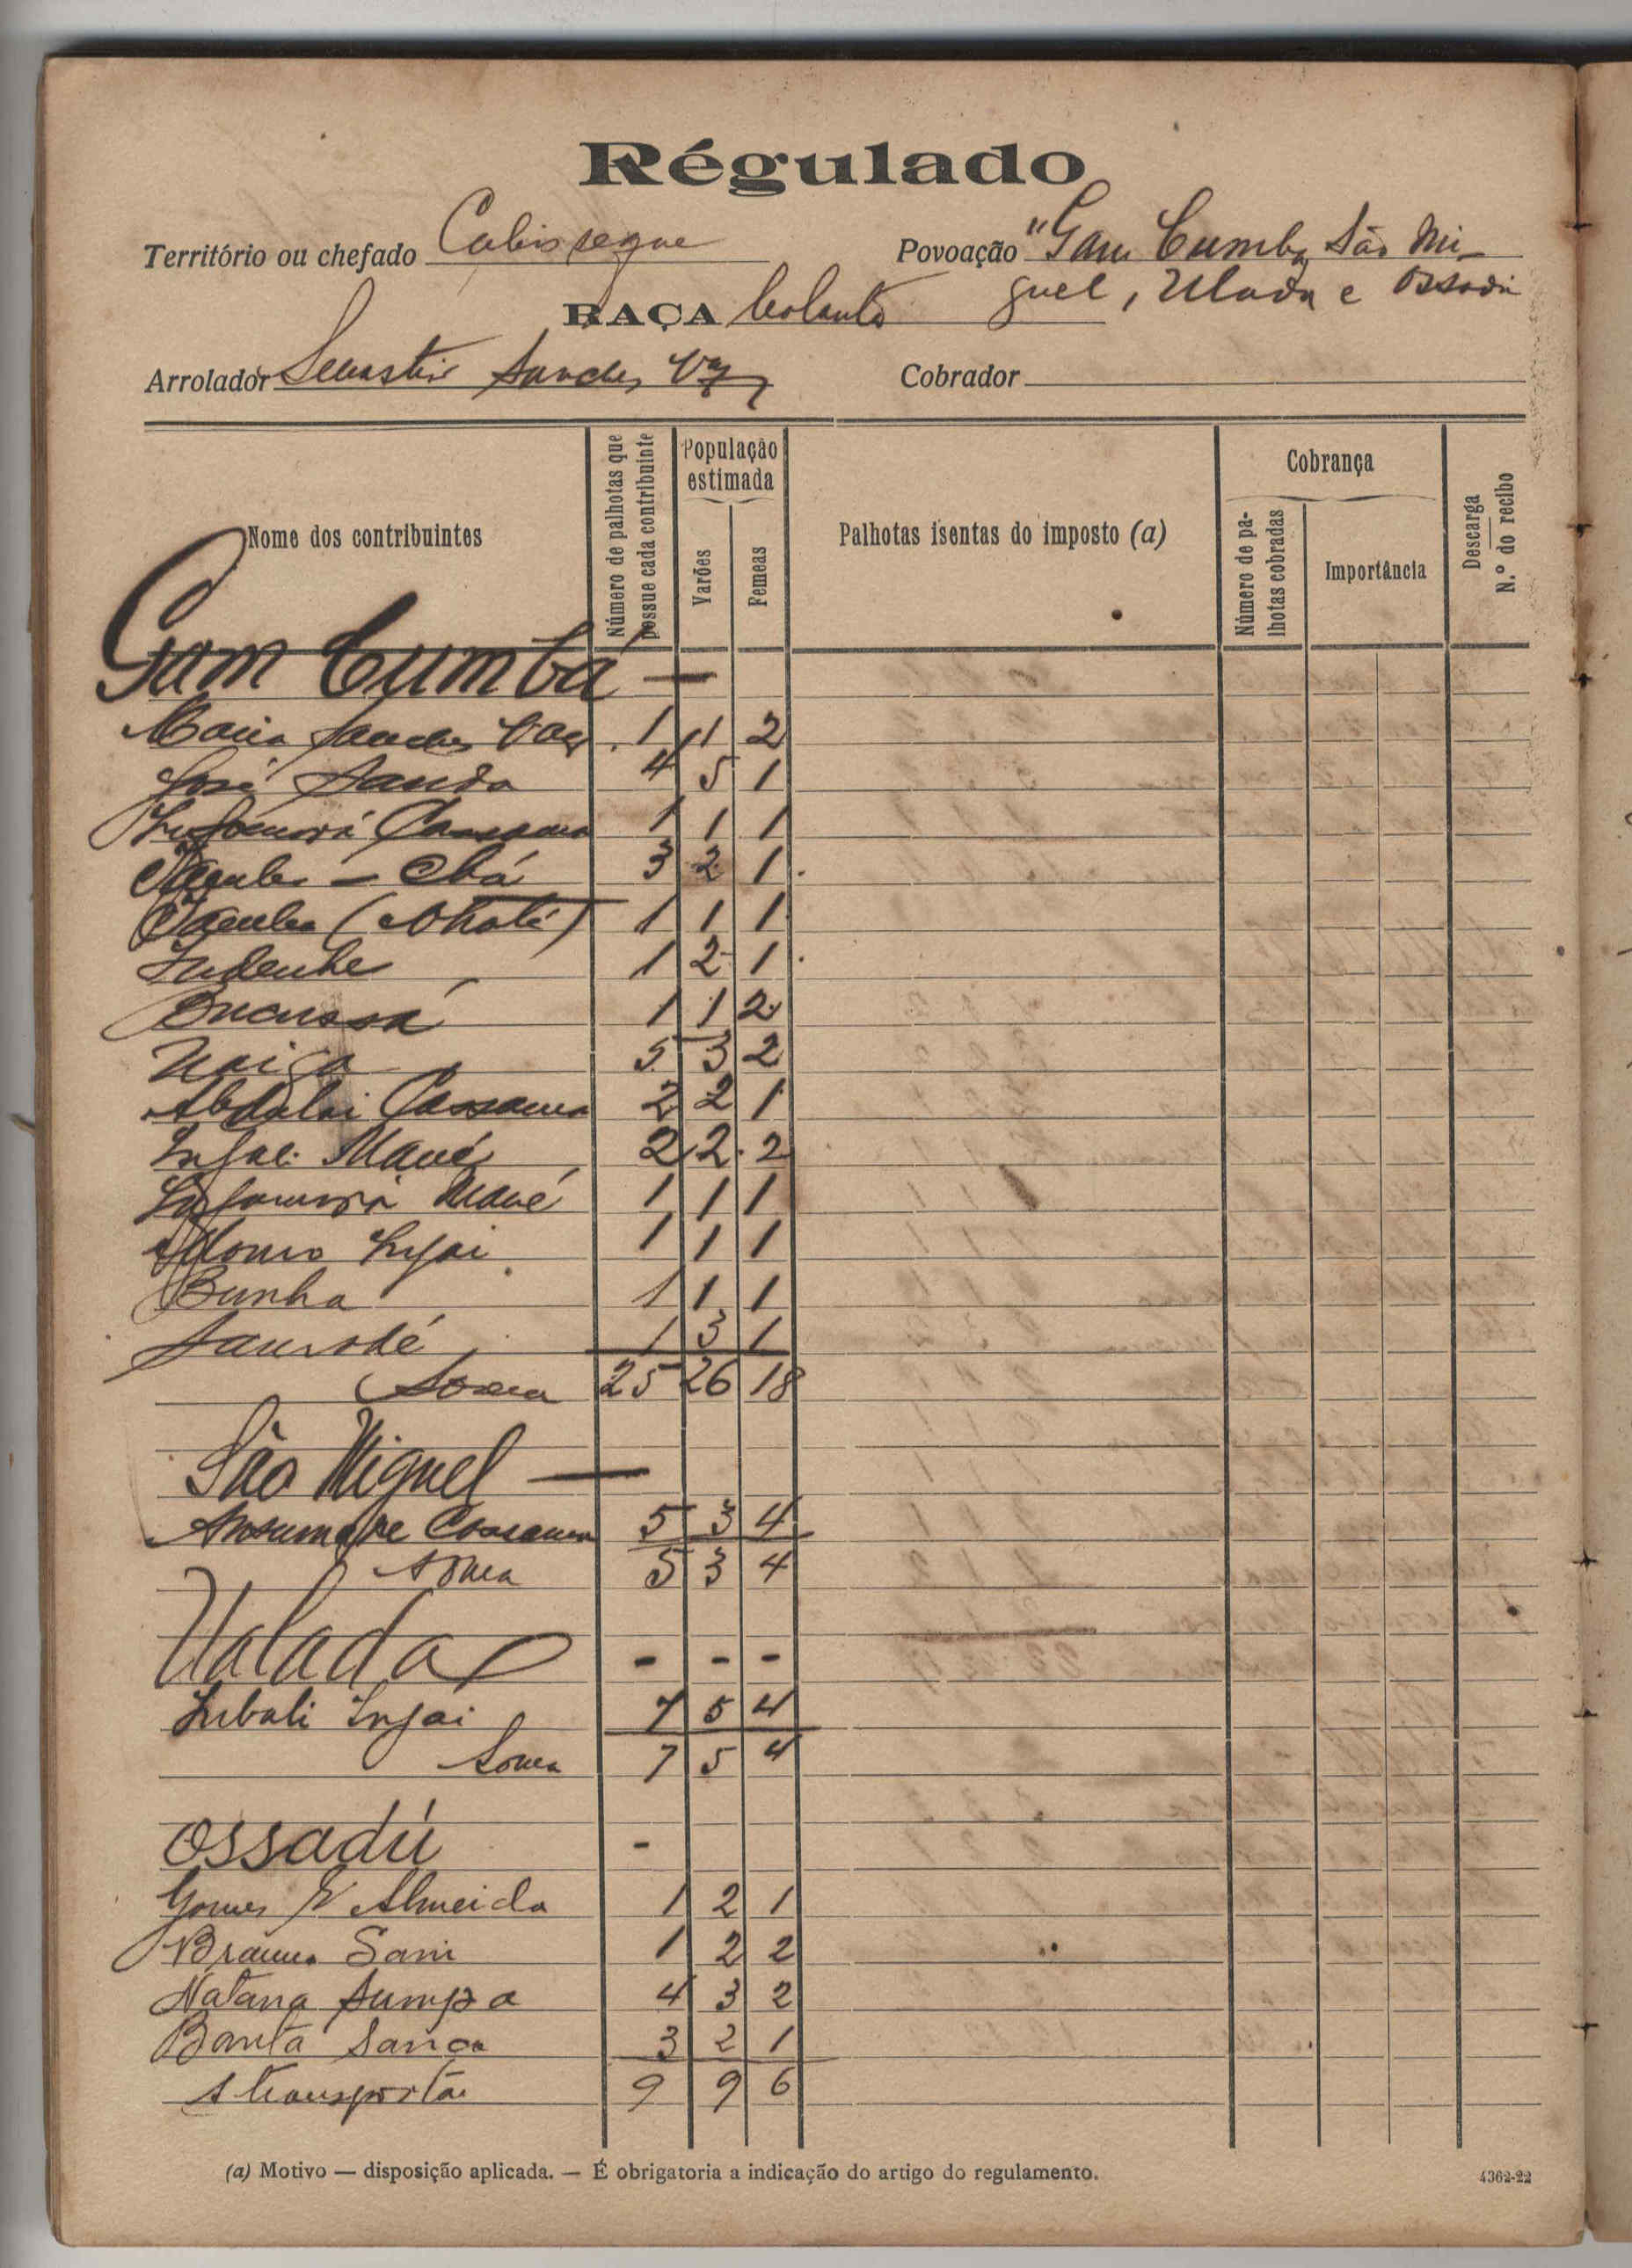 Régulado
Território ou chefado Cabissegue Povoação "Gam Cumba, São Mi-
guel, Ulada e Ossadú
RAÇA
Arrolador Sebastião Sanches Vaz Cobrador
Nome dos contribuintes Número de palhotas que possue cada contribuinte População estimada Varões Femeas Palhotas isentas do imposto (a) Cobrança Número de palhotas cobradas Importância Descarga N.º do recibo
Gam Cumbá —
Maria Sanches Vaz 1 1 2
José Sanda 4 5 1
Cassama 1 1 1
— 3 2 1
1 1 1
Indenhe 1 2 1
Bucussá 1 1 2
Naiga 5 3 2
Abdulai Cassama 2 2 1
Infali Mané 2 2 2
Mané 1 1 1
Injai 1 1 1
Bunha 1 1 1
1 3 1
Soma 25 26 18
São Miguel —
Ansumane Cassama 5 3 4
Soma 5 3 4
Ualada - - -
Injai 7 5 4
Soma 7 5 4
Ossadú -
Gomes Almeida 1 2 1
Braima Sani 1 2 2
Natana Sumpa 4 3 2
Banta Sanca 3 2 1
A transportar 9 9 6
(a) Motivo — disposição aplicada. — É obrigatoria a indicação do artigo do regulamento.
4362-22